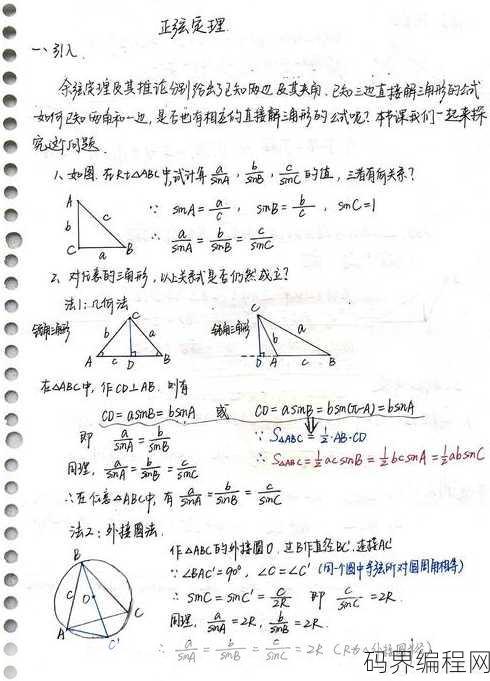 正弦定理
一、引入
余弦定理及其推论分别给出了已知两边及其夹角、已知三边直接解三角形的公式
如何已知两角和一边,是否也有相应的直接解三角形的公式呢?本节课我们一起来探
究这个问题.
1、如图.在Rt△ABC中,试计算 a/sinA , b/sinB , c/sinC 的值,三者有何关系?
A
b c
C a B
∵ sinA = a/c , sinB = b/c , sinC = 1
∴ a/sinA = b/sinB = c/sinC
2. 对任意的三角形,以上关系式是否仍然成立?
法1:几何法
锐角三角形
C
b a
A c D B
钝角三角形
C
b a
D A c B
在△ABC中,作CD⊥AB.则有
CD = asinB = bsinA 或 CD = asinB = bsin(π-A) = bsinA
即 a/sinA = b/sinB
∵ S△ABC = 1/2·AB·CD
同理, a/sinA = b/sinB = c/sinC
∴ S△ABC = 1/2 acsinB = 1/2 bcsinA = 1/2 absinC
∴在任意△ABC中,有 a/sinA = b/sinB = c/sinC
法2:外接圆法.
B
c O
A C
C'
作△ABC的外接圆O.过B作直径BC'.连接AC'
∵ ∠BAC' = 90°, ∠C = ∠C' (同一个圆中等弦所对圆周角相等)
∴ sinC = sinC' = c/2R 即 c/sinC = 2R.
同理, a/sinA = 2R, b/sinB = 2R.
∴ a/sinA = b/sinB = c/sinC = 2R (R为△外接圆半径)
码界编程网